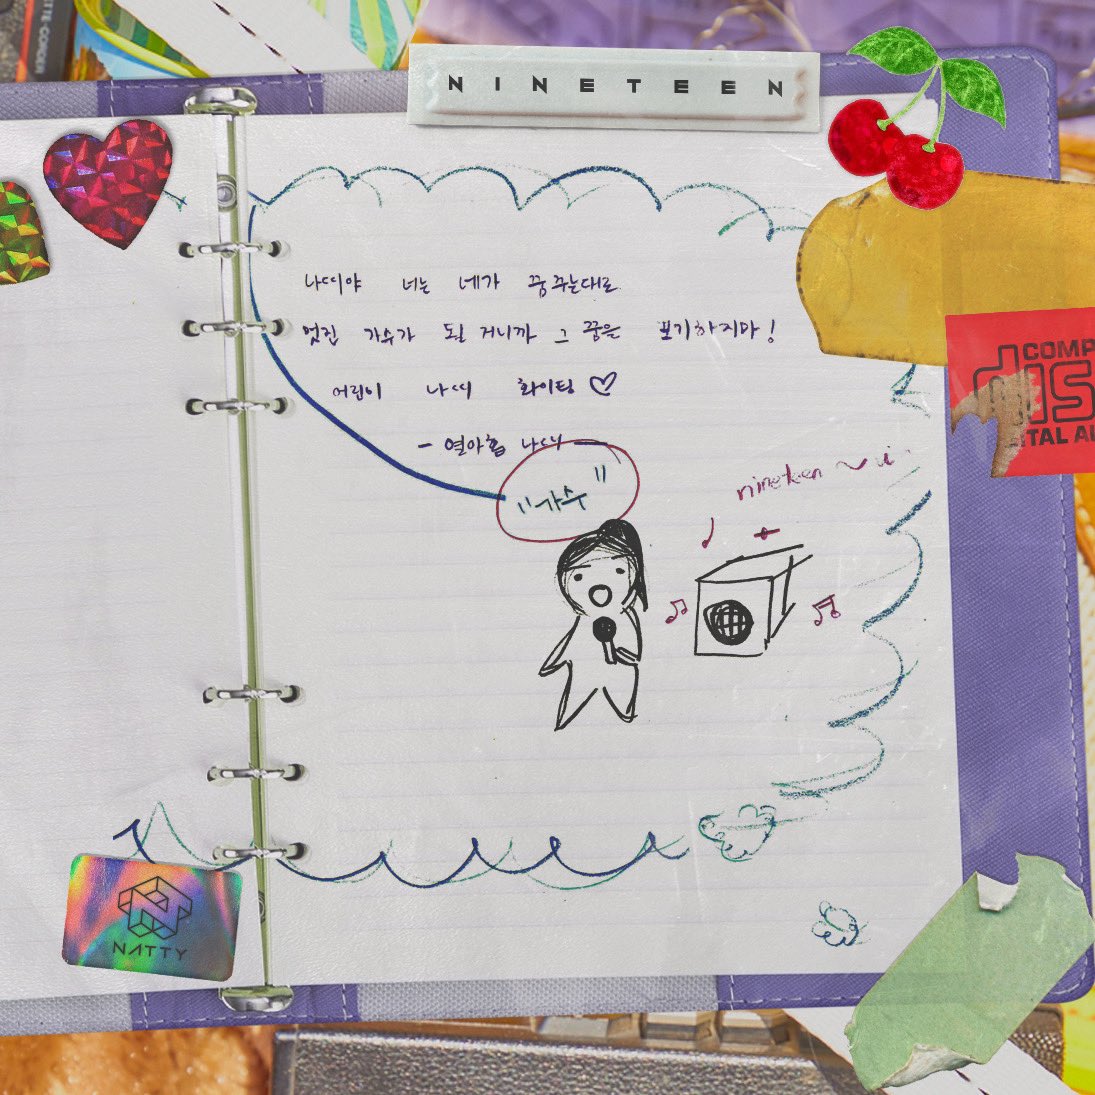 NINETEEN
나띠야 너는 네가 꿈꾸는대로
멋진 가수가 될 거니까 그 꿈은 포기하지마!
어린이 나띠 화이팅♡
- 열아홉 나띠
"가수"
nineteen ~
COMP
dis
ITAL AU
NATTY